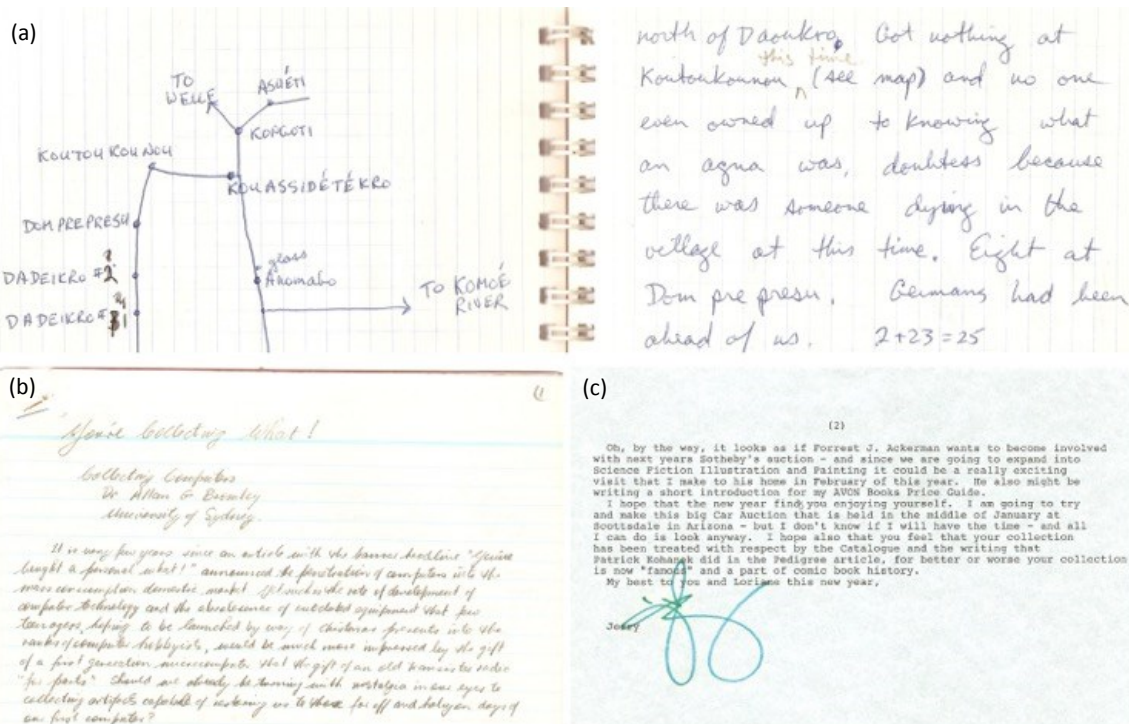 (a)
TO
WELLE
ASUÉTI
KOFGOTI
KOUTOU KOUNOU
KOUASSIDÉTÉKRO
DOM PREPRESU
DADEIKRO #2
glass
Ahomabo
TO KOMOÉ
RIVER
DADEIKRO #1
north of Daoukro. Got nothing at
this time
Koutoukounou (see map) and no one
even owned up to knowing what
an agua was, doubtless because
there was someone dying in the
village at this time. Eight at
Dom pre presu. Germans had been
ahead of us. 2+23=25
(b)
"You're Collecting What!
Collecting Computers
Dr Allan G Bromley
University of Sydney.
It is very few years since an article with the banner headline "You've
bought a personal what!" announced the penetration of computers into the
mass consumption domestic market. Yet such is the rate of development of
computer technology and the obsolescence of outdated equipment that few
teenagers, hoping to be launched by way of Christmas presents into the
ranks of computer hobbyists, would be much more impressed by the gift
of a first generation microcomputer that the gift of an old transistor radio
"for parts". Should we already be turning with nostalgia in our eyes to
collecting artifacts capable of restoring us to those far off and halcyon days of
our first computer?
(c)
(2)
Oh, by the way, it looks as if Forrest J. Ackerman wants to become involved
with next years Sotheby's auction - and since we are going to expand into
Science Fiction Illustration and Painting it could be a really exciting
visit that I make to his home in February of this year. He also might be
writing a short introduction for my AVON Books Price Guide.
I hope that the new year finds you enjoying yourself. I am going to try
and make this big Car Auction that is held in the middle of January at
Scottsdale in Arizona - but I don't know if I will have the time - and all
I can do is look anyway. I hope also that you feel that your collection
has been treated with respect by the Catalogue and the writing that
Patrick Kohanek did in the Pedigree article, for better or worse your collection
is now "famous" and a part of comic book history.
My best to you and Loriane this new year,
Jerry